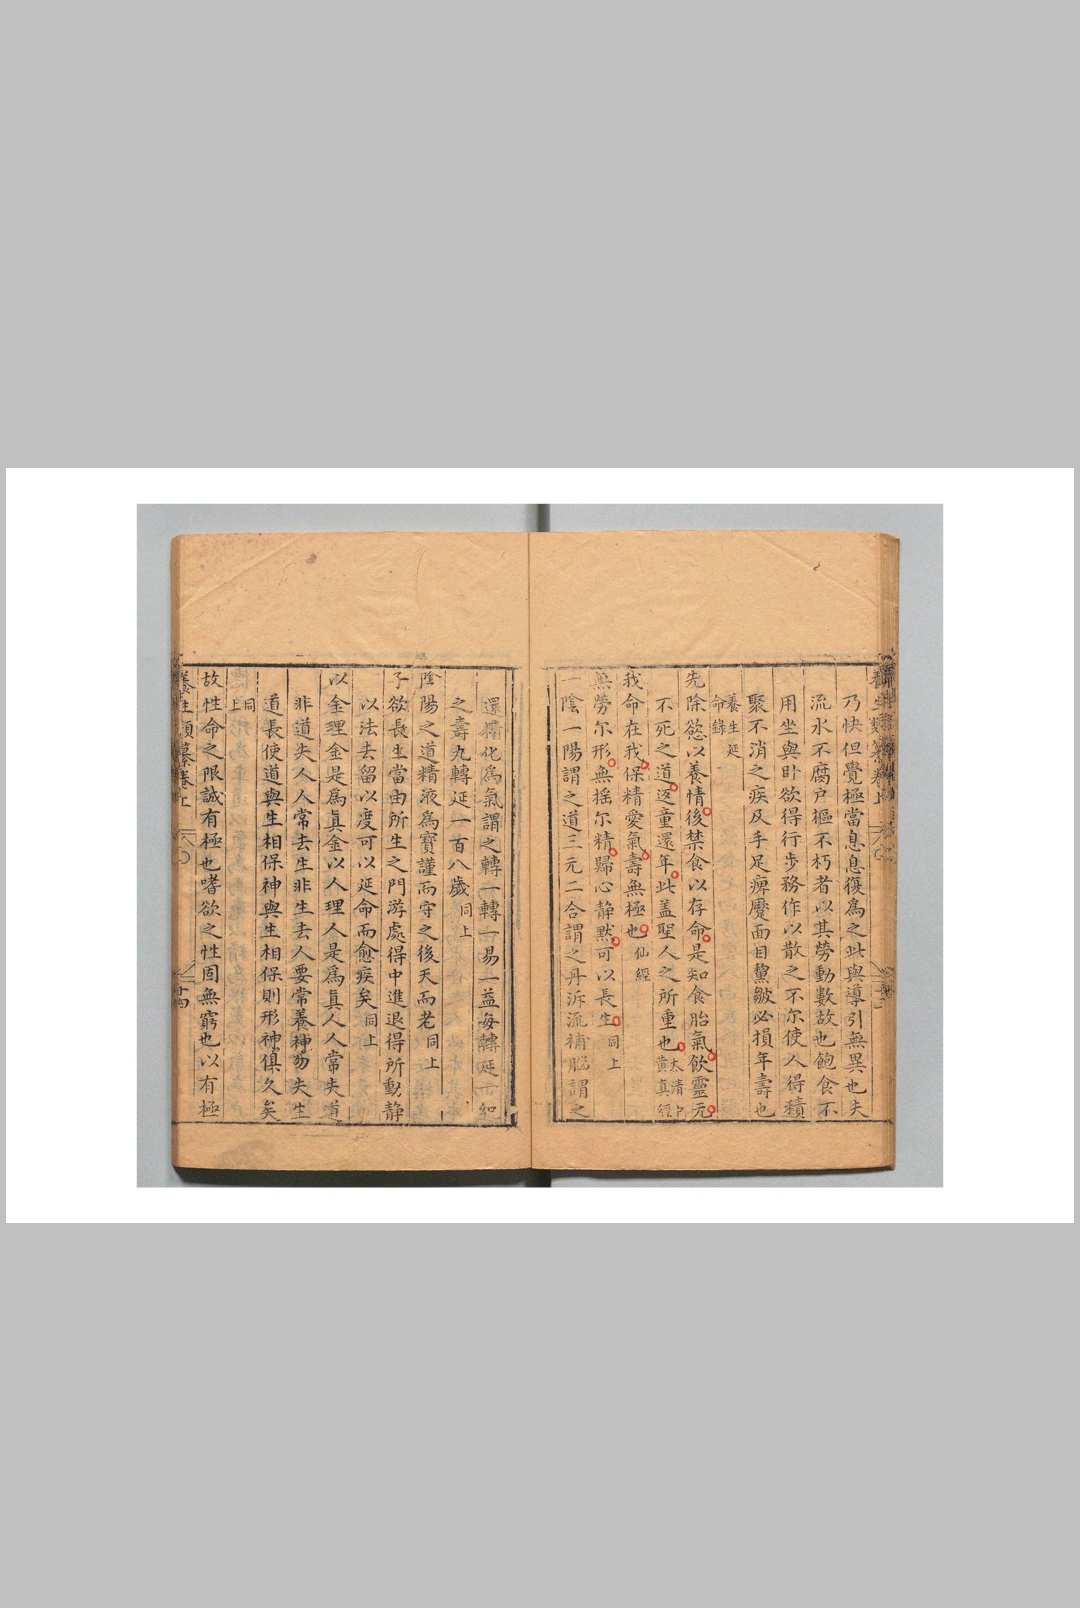 乃快但覺極當息息復為之此與導引無異也夫
流水不腐户樞不朽者以其勞動數故也飽食不
用坐與卧欲得行步務作以散之不尔使人得積
聚不消之疾及手足痺蹷面目黧皺必損年壽也
養生延
命錄
先除慾以養情後禁食以存命是知食胎氣飲靈元
不死之道返童還年此盖聖人之所重也太清中
黄真經
我命在我保精愛氣壽無極也仙經
無勞尔形無摇尔精歸心静默可以長生同上
一陰一陽謂之道三元二合謂之丹泝流補腦謂之
還精化為氣謂之轉一轉一易一益每轉延一紀
之壽九轉延一百八歲同上
陰陽之道精液為寶謹而守之後天而老同上
子欲長生當由所生之門游處得中進退得所動静
以法去留以度可以延命而愈疾矣同上
以金理金是為真金以人理人是為真人人常失道
非道失人人常去生非生去人要常養神勿失生
道長使道與生相保神與生相保則形神俱久矣
同上
故性命之限誠有極也嗜欲之性固無窮也以有極
養生類纂卷上
十四